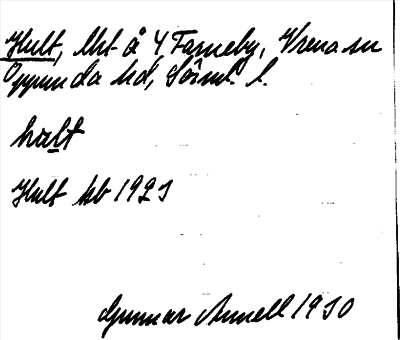 Hult, lht å Y Tarneby, Vrena sn
Oppunda hd, Söml. l.
halt
Hult kb 1921
Gunnar Annell 1930